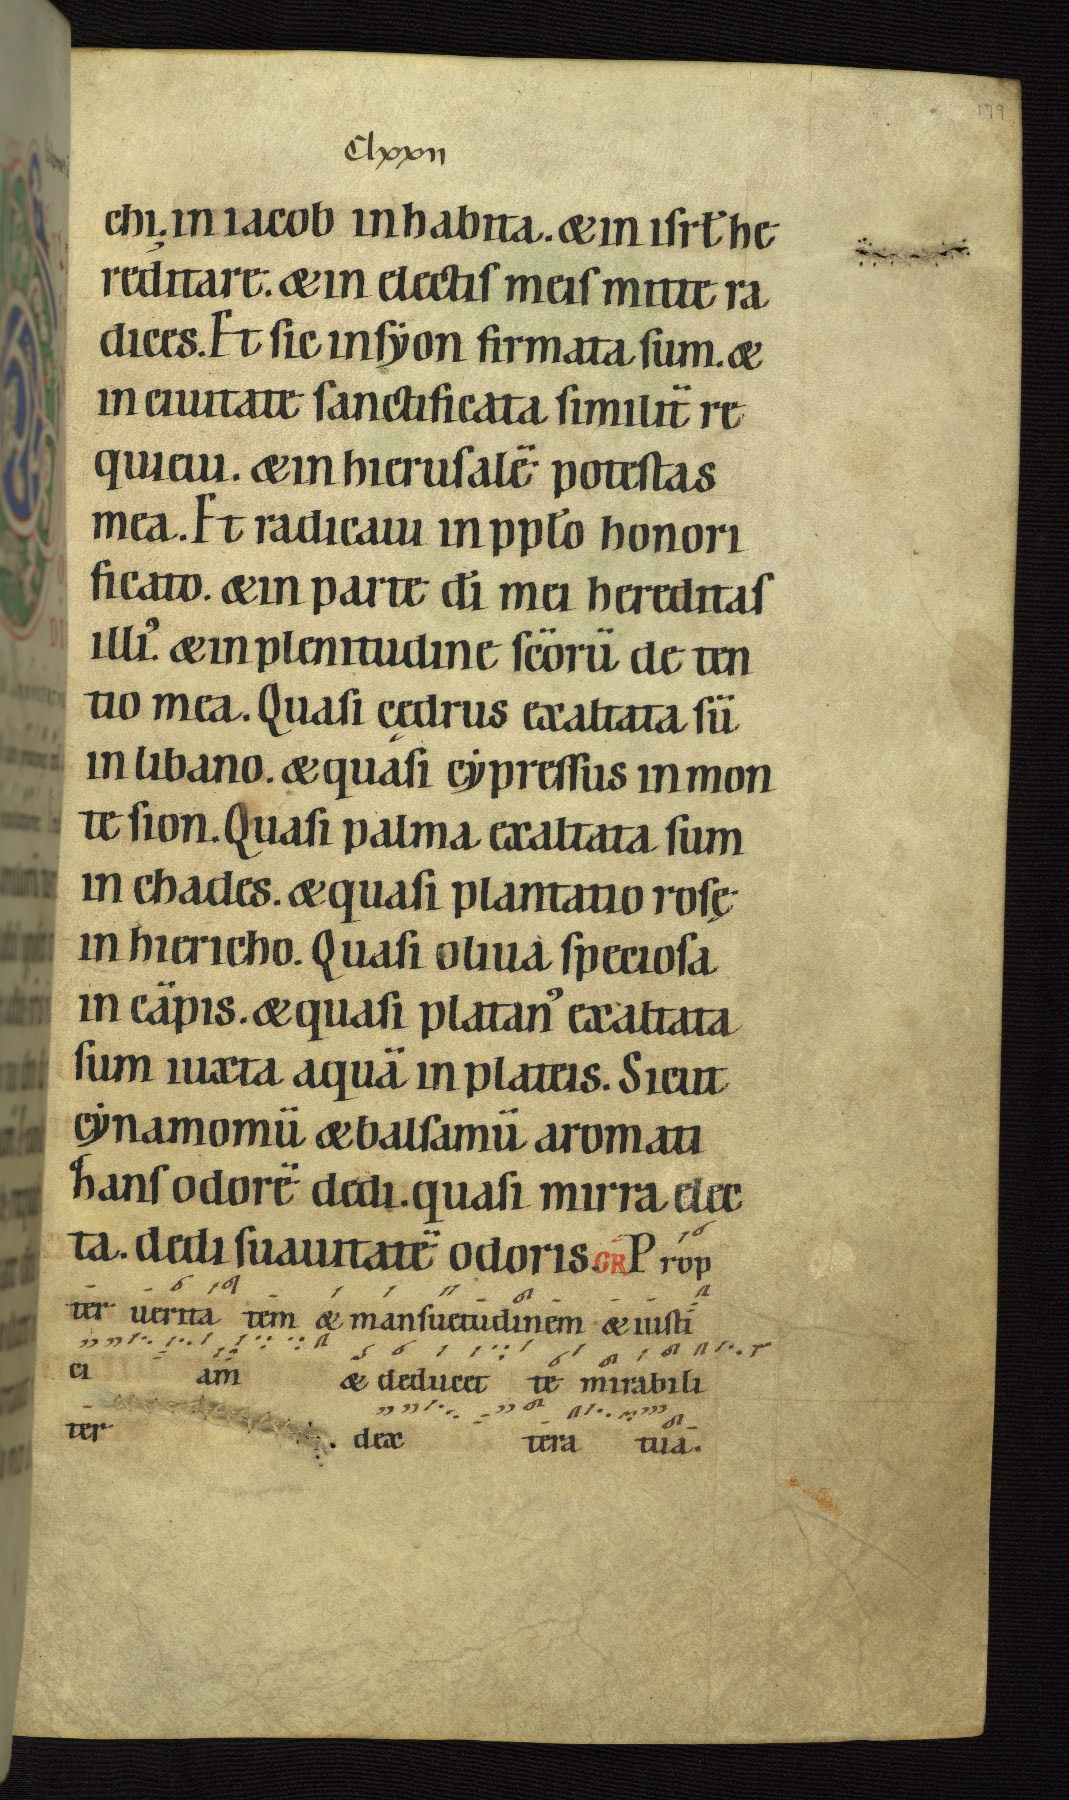 179
Clxxii
chi. in iacob inhabita. & in isrl̄ he
reditare. & in electis meis mitte ra
dices. Et sic in sẏon firmata sum. &
in ciuitate sanctificata similit̄ re
quieui. & in hierusalē potestas
mea. Et radicaui in pplo̅ honori
ficato. & in parte dī mei hereditas
illiꝰ. & in plenitudine scōrū de ten
tio mea. Quasi cędrus exaltata sū
in libano. & quasi cẏpressus in mon
te sion. Quasi palma exaltata sum
in chades. & quasi plantatio rosę
in hiericho. Quasi oliua speciosa
in cāpis. & quasi platanꝰ exaltata
sum iuxta aquā in plateis. Sicut
cẏnamomū & balsamū aromati
hans odorē dedi. quasi mirra elec
ta. dedi suauitatē odoris. GR Prop
ter uerita tem & mansuetudinem & iusti
ci am & deducet te mirabili
ter . dex tera tua.